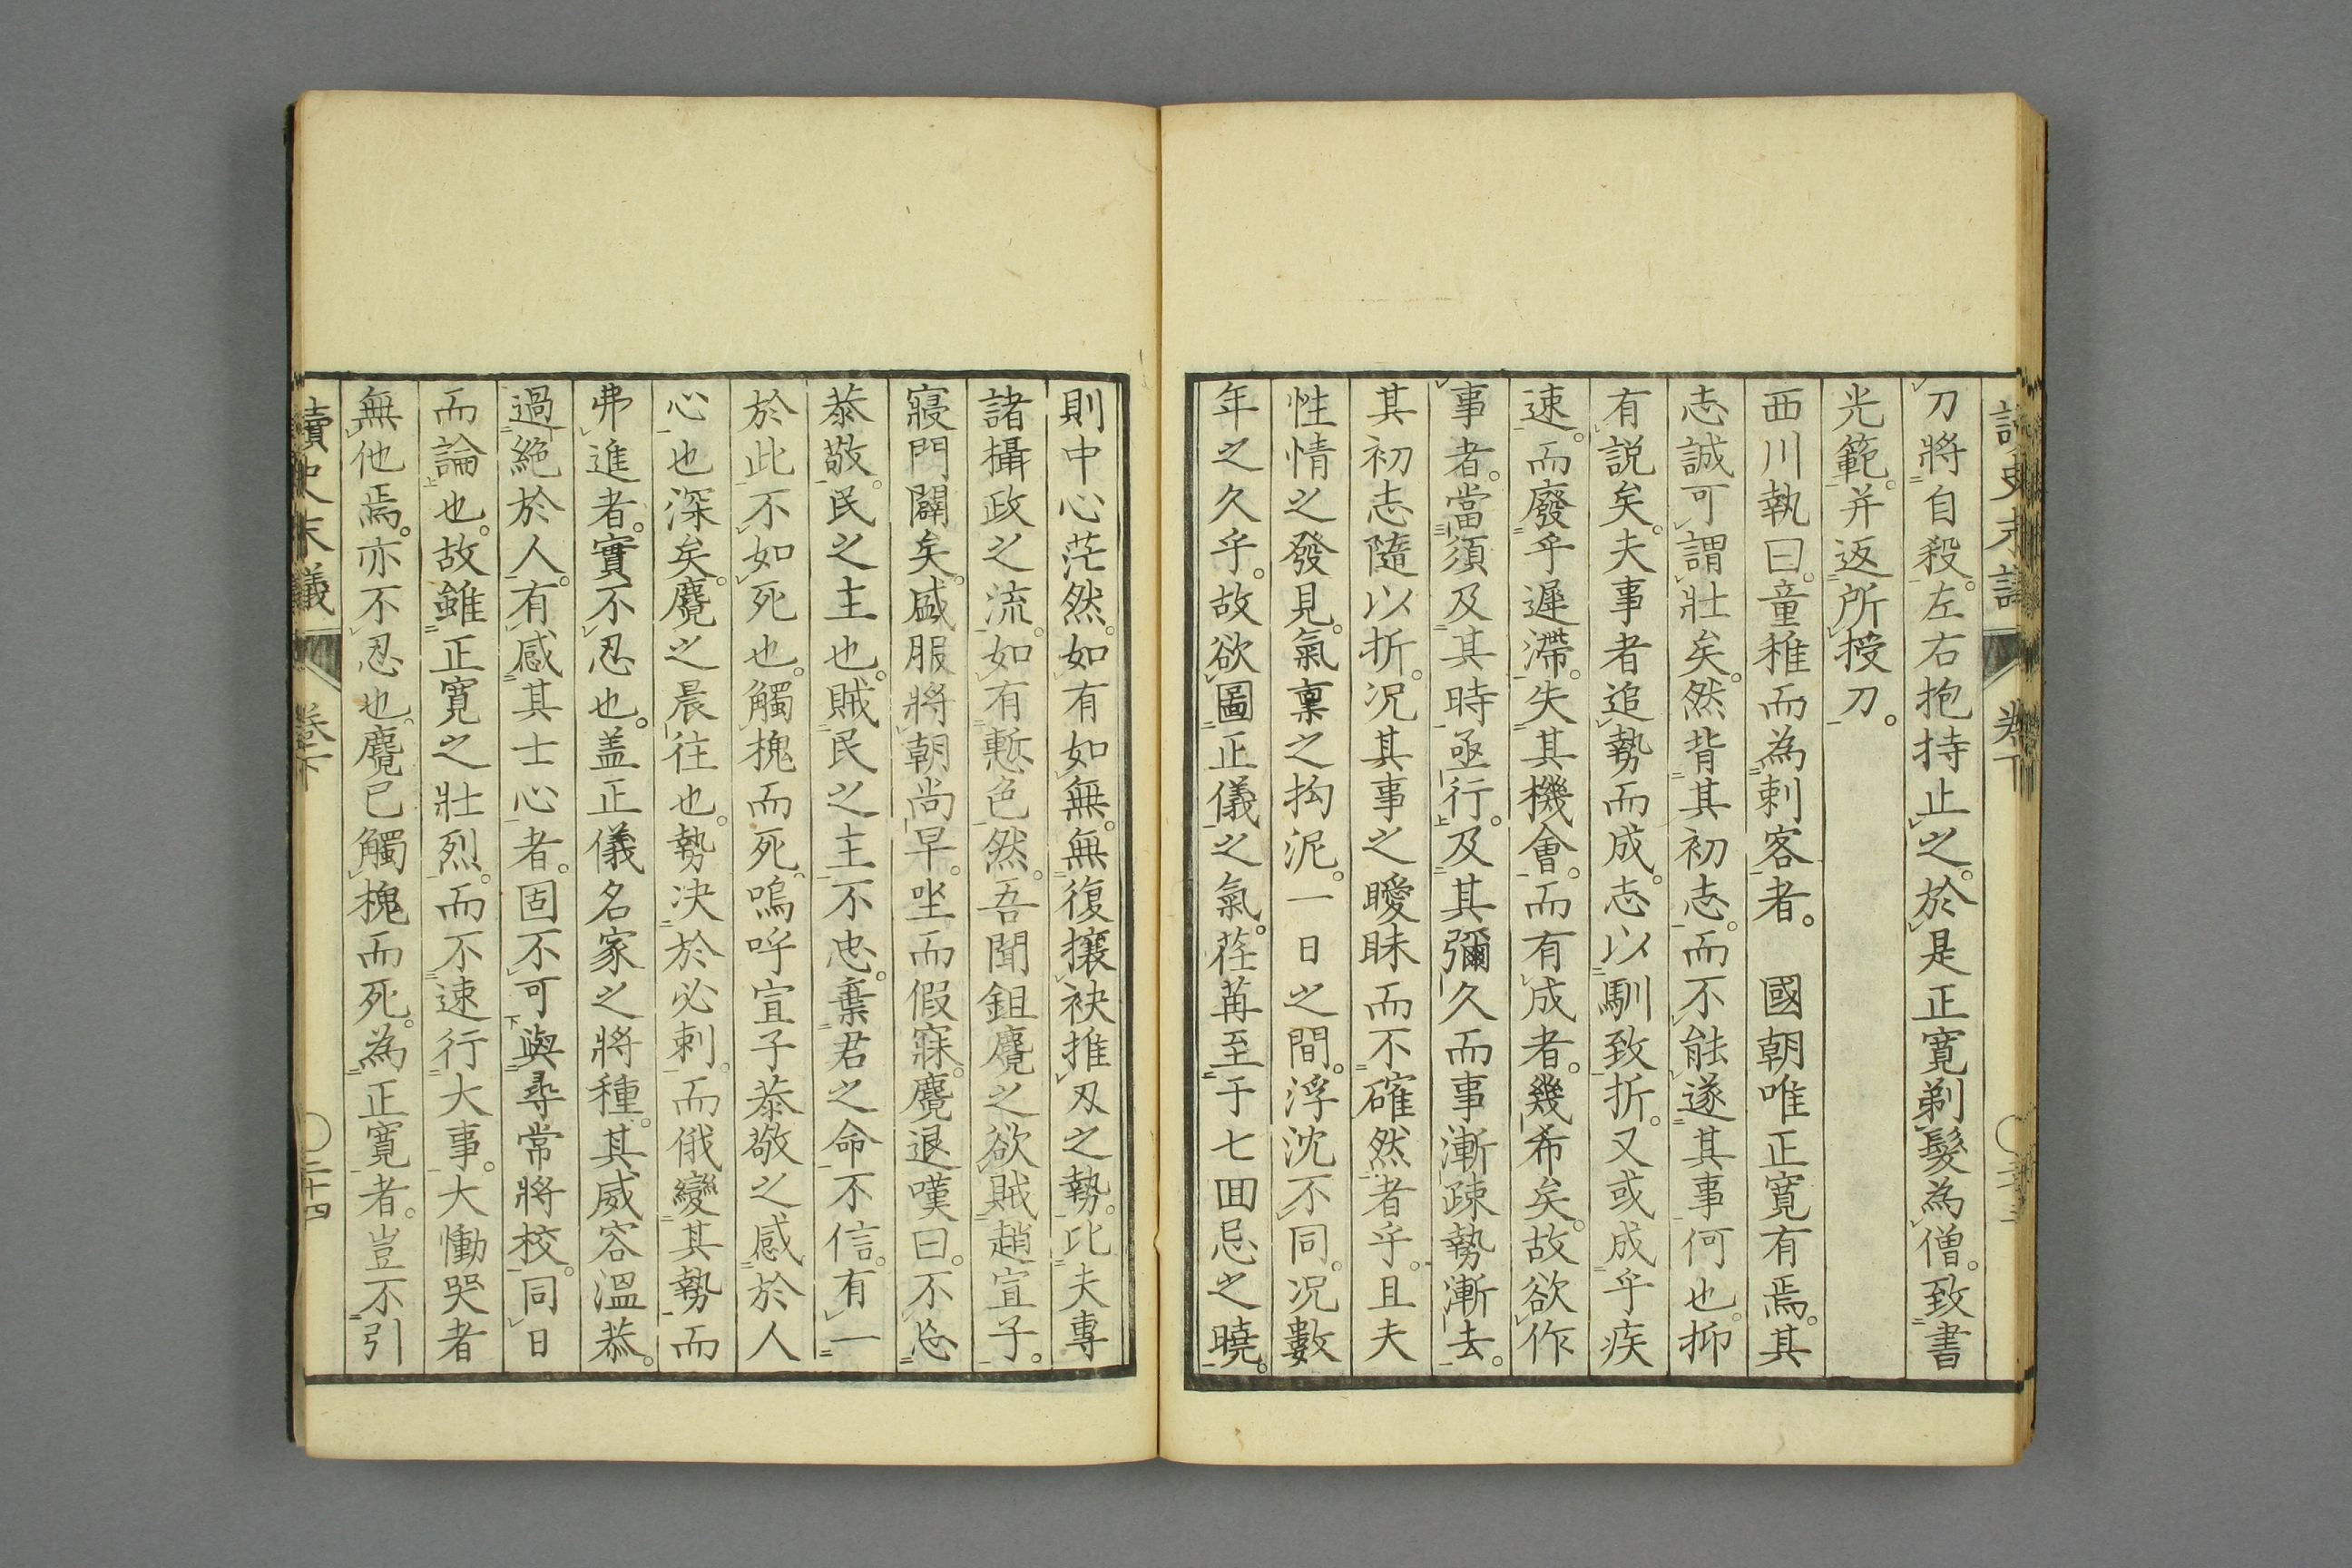 刀將自殺。左右抱持止之。於是正寬剃髮為僧。致書
光範。并返所授刀。
西川執曰。童稚而為刺客者。　國朝唯正寬有焉。其
志誠可謂壯矣。然背其初志。而不能遂其事何也。抑
有説矣。夫事者追勢而成。志以馴致折。又或成乎疾
速。而廢乎遲滯。失其機會。而有成者。幾希矣。故欲作
事者。當須及其時亟行。及其彌久而事漸疎勢漸去。
其初志隨以折。況其事之曖昧而不確然者乎。且夫
性情之發見。氣稟之拘泥。一日之間。浮沈不同。況數
年之久乎。故欲圖正儀之氣。荏苒至于七囬忌之曉。
則中心茫然。如有如無。無復攘袂推刄之勢。比夫專
諸攝政之流。如有慙色。然。吾聞鉏麑之欲賊趙宣子。
寢門闢矣。盛服將朝尚早。坐而假寐。麑退嘆曰。不忘
恭敬。民之主也。賊民之主不忠。棄君之命不信。有一
於此不如死也。觸槐而死。嗚呼宣子恭敬之感於人
心也深矣。麑之晨往也。勢决於必刺。而俄變其勢而
弗進者。實不忍也。盖正儀名家之將種。其威容溫恭。
過絕於人。有感其士心者。固不可與尋常將校。同日
而論也。故雖正寬之壯烈。而不速行大事。大慟哭者
無他焉。亦不忍也。麑已觸槐而死。為正寬者。豈不引
讀史末議
卷下
二十四